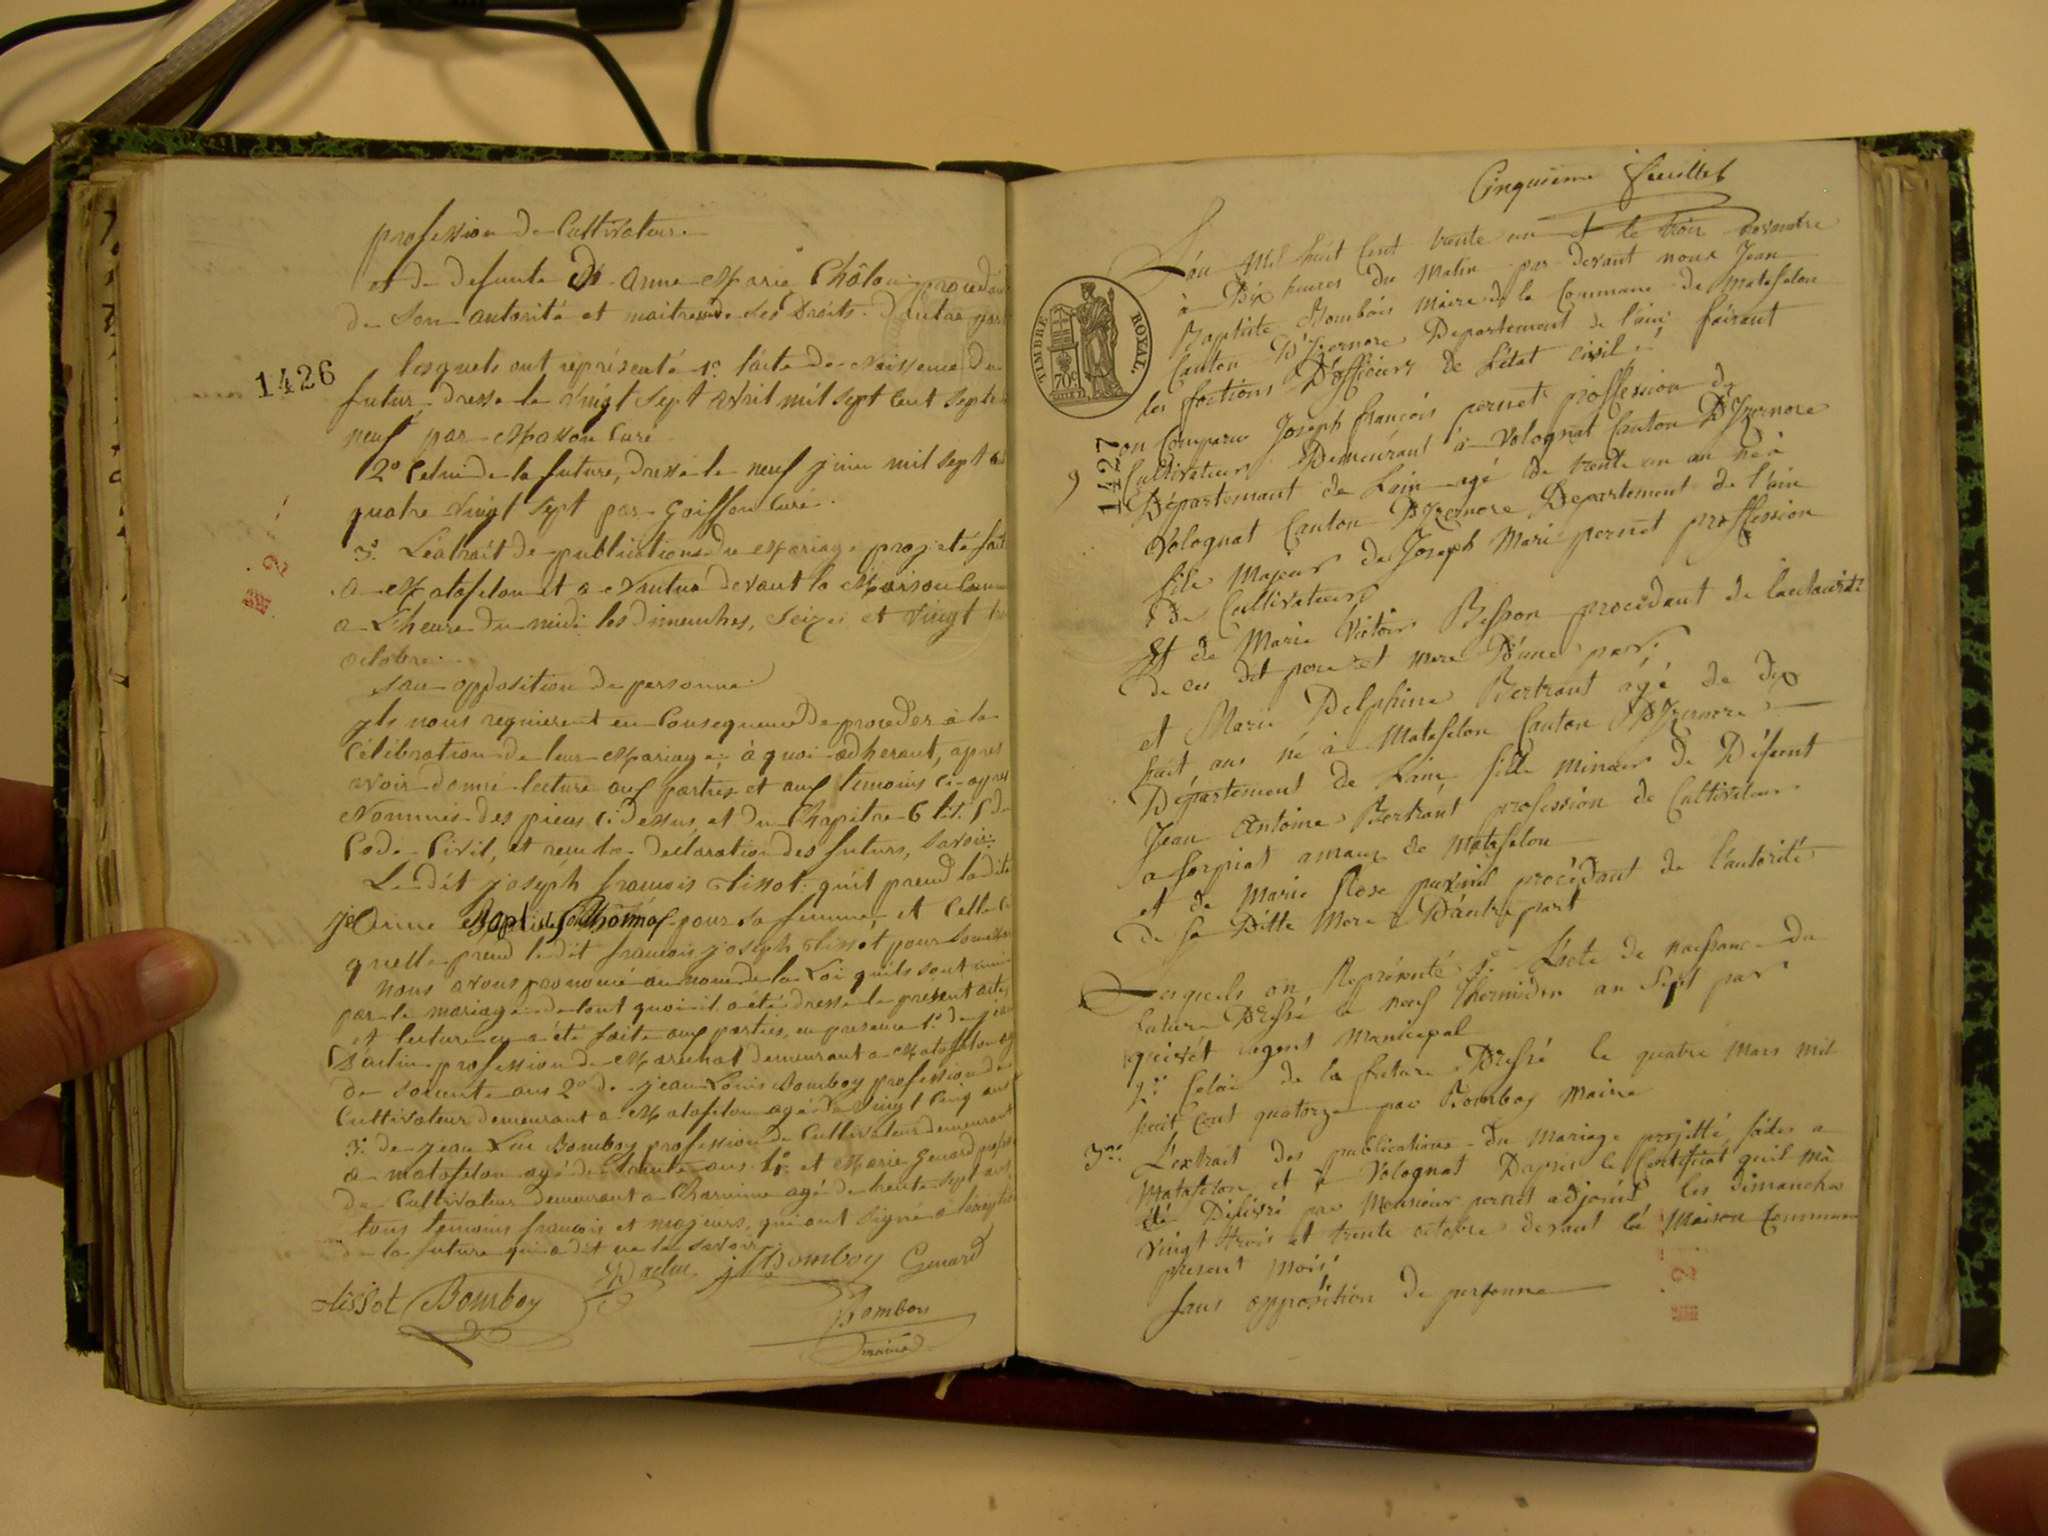 profession de Cultivateur
et de defunte Anne Marie Châlon procedan
de son autorité et maitresse de ses Droits. D'autre part
1426
lesquels ont représenté 1º l'acte de Naissence du
futur dressé le Vingt Sept Avril mil Sept Cent Septe
neuf par Masson Curé
2º Celui de la future, dressé le neuf juin mil Sept
quatre Vingt Sept par Goiffon Curé.
3º L'éxtrait de publications du Mariage projeté fait
a Matafelon et a Nantua devant la Maison Com
a L'heure du midi les dimenches, Seize et Vingt
octobre
san opposition de personne
ils nous requierent en Consequence de proceder à la
Célébration de leur Mariage à quoi adherant, apres
avoir donné lecture aux partres et aux temoins ci-apres
Nommés des pieces ci dessus et du Chapitre 6 tit. 5 du
Code Civil, et recu la déclaration des futurs, Savoir:
Le dit joséph francois tissot qu'il prend la dite
jeanne Baptiste Thômas pour sa femme, et Celle ci
quelle prend le dit francois joseph tissôt pour Son
nous avons prononcé au nom de la Loi qu'ils sont unis
par le mariage de tout quoi il a été dressé le présent acte
et lecture en a été faite aux parties, en presence 1º de jean
profession de Marechat demeurant a Matafelon
de Soixente ans 2º de jean Louis Bomboy profession de
Cultivateur demeurant a Matafelon agé de Vingt Cinq ans
3º de jean Luc Bomboy profession de Cultivateur demeurant
a matafelon agé de trente ans. et Marie Genard
de Cultivateur demeurant a agé de trente Sept ans
tous temoins francois et majeurs, qui ont Signé a
de la future qui a dit ne le Savoir
tissot Bomboy Bomboy Genard
Bombois
maire
Cinquième feuillet
L'an Mil huit Cent trente un et le trois novembre
à Dix heures du Matin par devant nous Jean
Baptiste Bombois Maire de la Commune de Matafelon
Canton D'Izernore Departement de l'ain, faisant
les foctions D'officier de L'état Civil
TIMBRE ROYAL.
70c
1427
9
on Comparu Joseph françois pernet proffession de
Cultivateur Demeurant à Volognat Canton D'Izernore
Département de Lain agé de trente un an né à
Volognat Canton D'Izernore Departement de l'ain
fils Majeur de Joseph Mari pernet proffession
De Cultivateur
Et de Marie Victoir Besson procédant de L'autorité
de ces dit pere et mere D'une part.
et Marie Delphine Bertrant agé de dix
huit ans né à Matafelon Canton D'Izernore
Département de Lain fille mineur de Défunt
Jean Antoine Bertrant profession de Cultivateur
a Corpiat amaux de Matafelon
et de Marie Rose procédant de l'autorité
De sa Ditte Mere D'autre part
Lesquels on Représenté 1º L'acte de naissance du
future Dréssé le neuf thermidor an Sept par
agent Municepal
2º Celui de la future Dréssé le quatre Mars mil
huit Cent quatorze par Bomboy Maire
3me L'extrait des publications du Mariage projetté faites a
Matafelon et a Volognat Daprès le Certificat quil m'à
été Délivré par Monsieur pernet adjoint les Dimanches
Vingt trois et trente octobre devant la Maison Commune
présent mois
sans opposition de personne